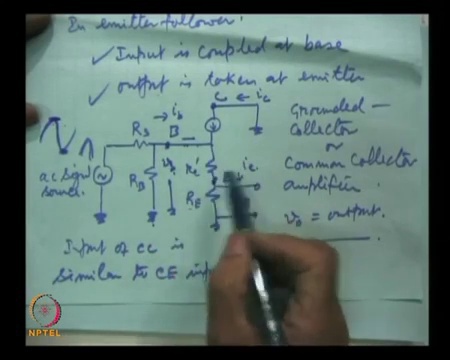 In emitter follower:
✓ Input is coupled at base
✓ output is taken at emitter
C ic
ib
Rs B
RB
re' ie
RE
ac signal
source.
Grounded –
collector
or
Common Collector
amplifier.
vo = output.
Input of CC is
similar to CE
NPTEL